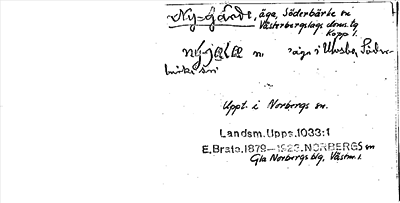 Ny-Gärde, äga, Söderbärke sn
Västerbergslags doms.lg
Kopp l.
n. äga i Ulvsbo, Söder-
bärke sn
Uppt. i Norbergs sn.
Landsm. Upps. 1033:1
E. Brate. 1879—1923. NORBERGS sn
Gla Norbergs blg, Västm. l.